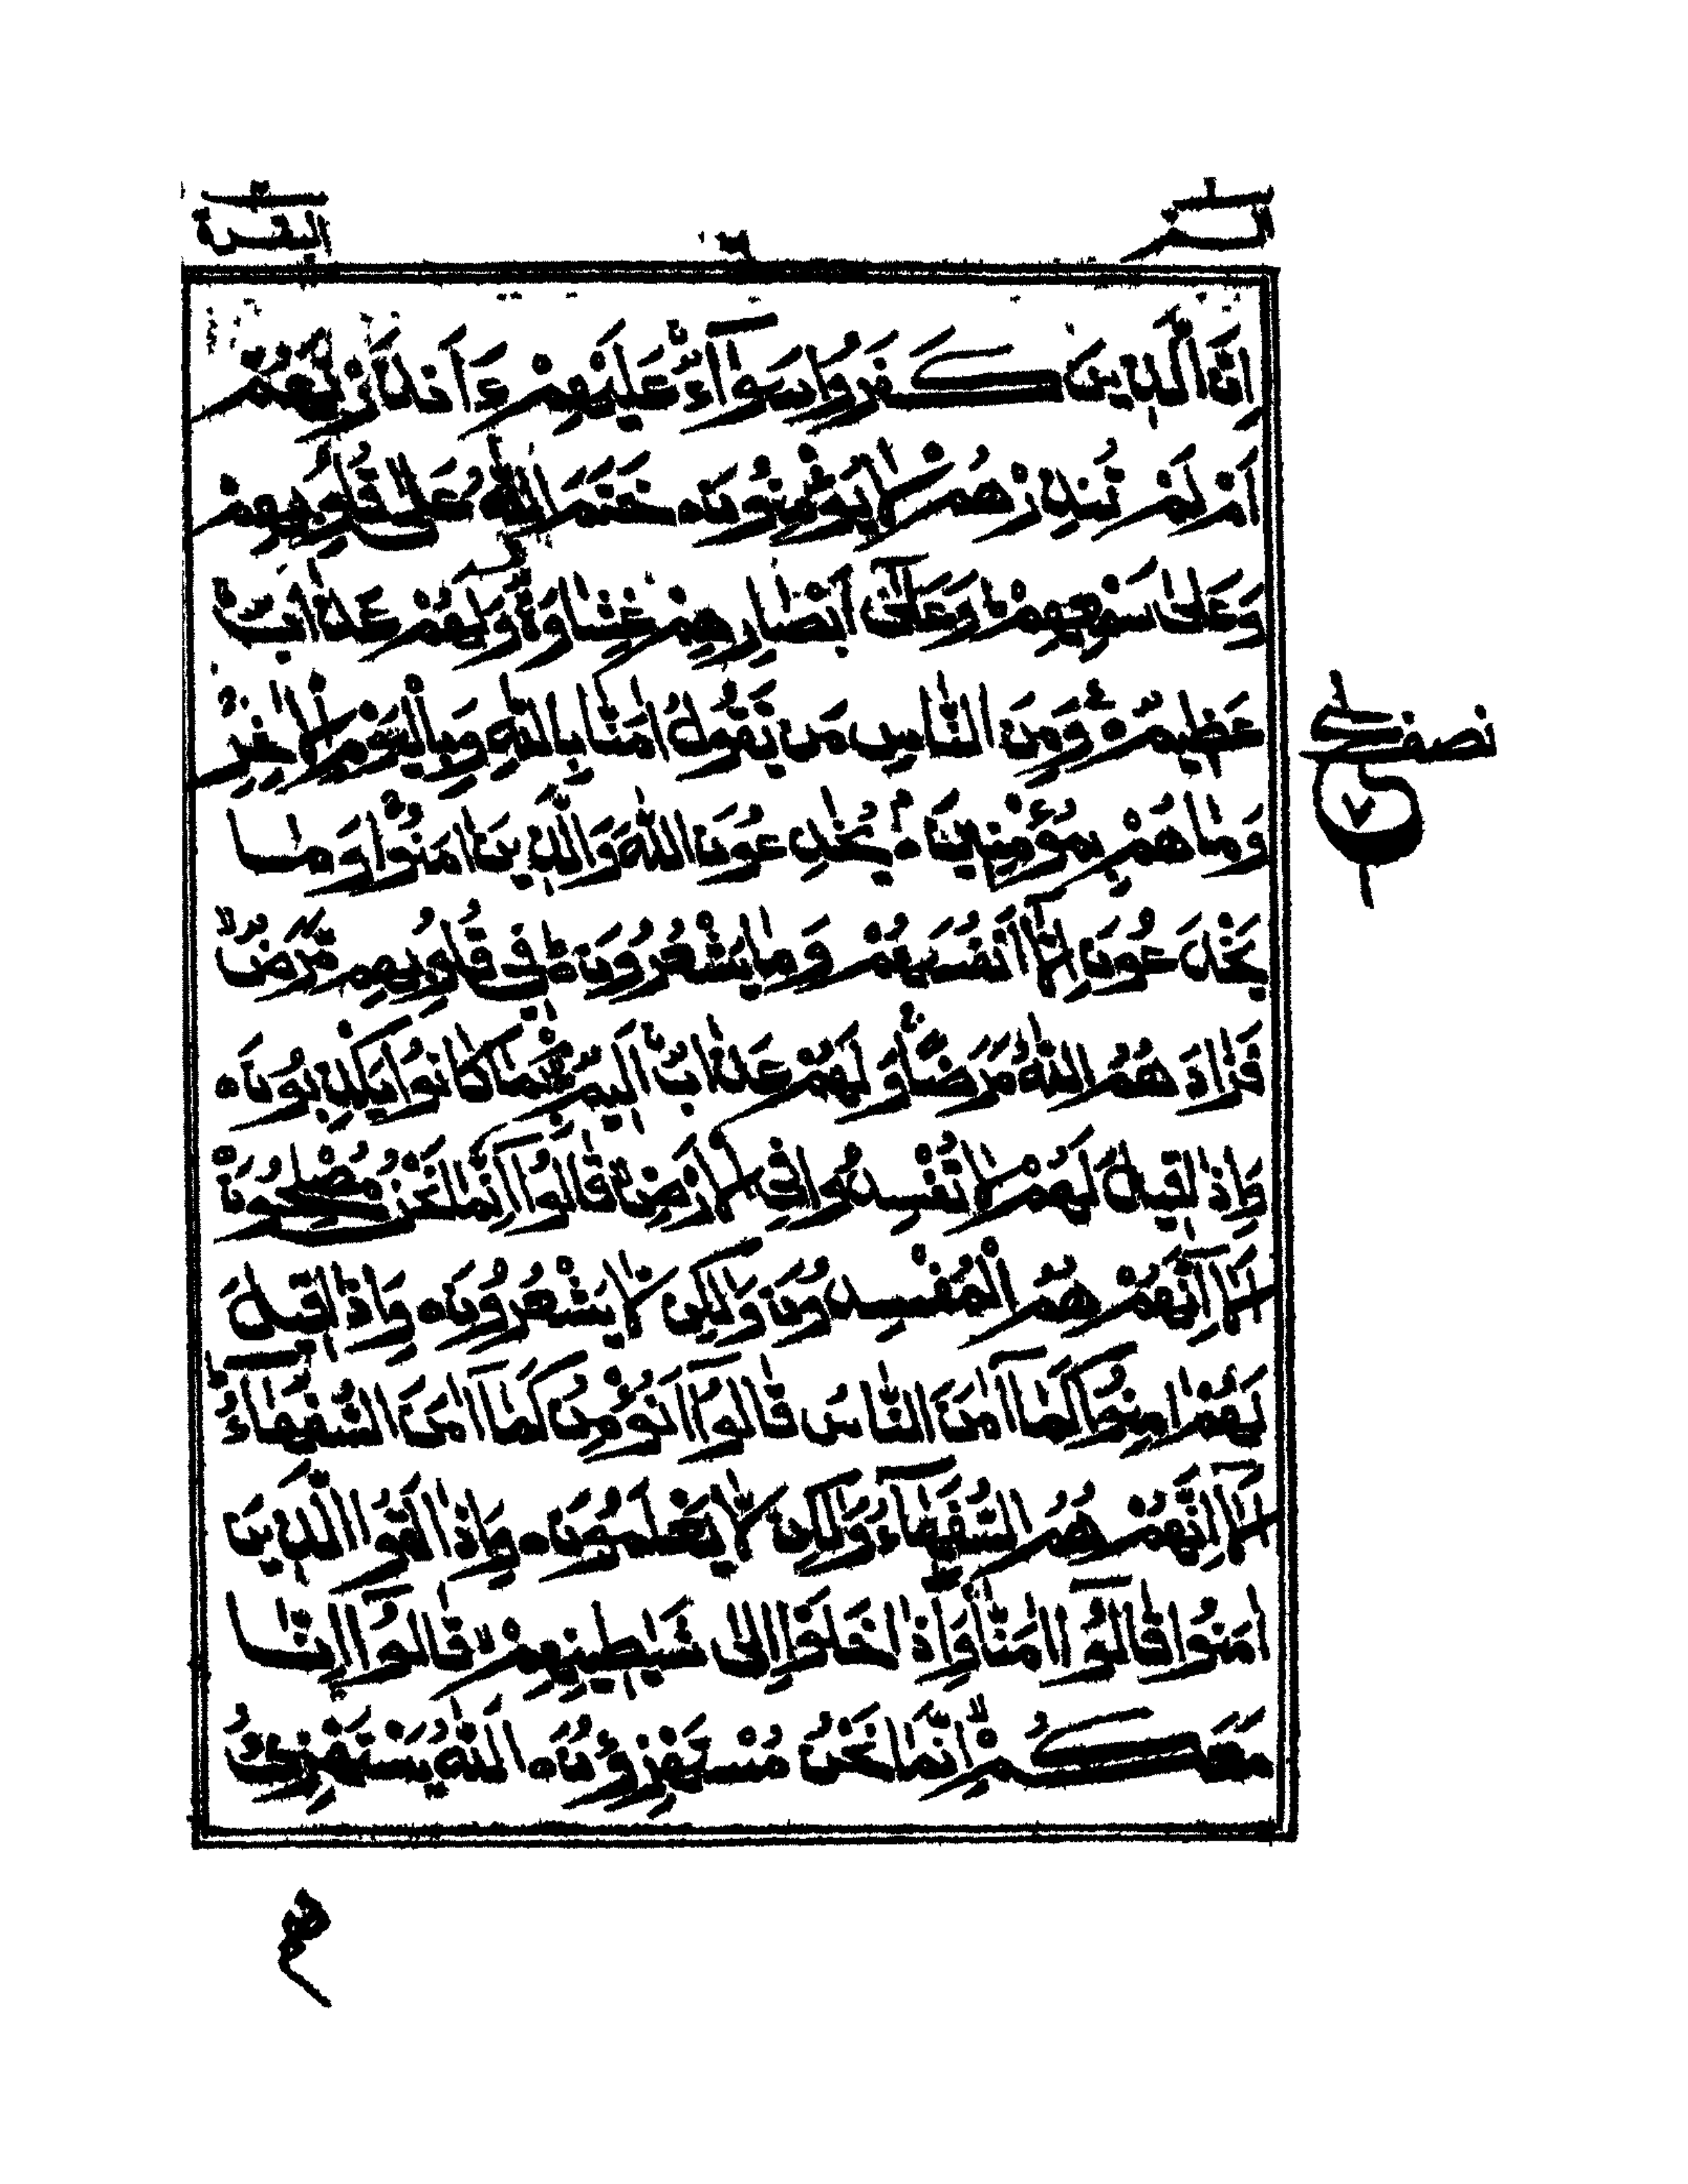 البقرة
الم
اِنَّ الَّذِيْنَ كَفَرُوْا سَوَآءٌ عَلَيْهِمْ ءَاَنْذَرْتَهُمْ
اَمْ لَمْ تُنْذِرْهُمْ لَا يُؤْمِنُوْنَ ۝ خَتَمَ اللّٰهُ عَلٰى قُلُوْبِهِمْ
وَعَلٰى سَمْعِهِمْ ؕ وَعَلٰٓى اَبْصَارِهِمْ غِشَاوَةٌ وَّلَهُمْ عَذَابٌ
عَظِيْمٌ ۝ وَمِنَ النَّاسِ مَنْ يَّقُوْلُ اٰمَنَّا بِاللّٰهِ وَبِالْيَوْمِ الْاٰخِرِ
وَمَا هُمْ بِمُؤْمِنِيْنَ ۝ يُخٰدِعُوْنَ اللّٰهَ وَالَّذِيْنَ اٰمَنُوْا وَمَا
يَخْدَعُوْنَ اِلَّآ اَنْفُسَهُمْ وَمَا يَشْعُرُوْنَ ۝ فِيْ قُلُوْبِهِمْ مَّرَضٌ ۙ
فَزَادَهُمُ اللّٰهُ مَرَضًا وَلَهُمْ عَذَابٌ اَلِيْمٌۢ بِمَا كَانُوْا يَكْذِبُوْنَ ۝
وَاِذَا قِيْلَ لَهُمْ لَا تُفْسِدُوْا فِى الْاَرْضِ ۙ قَالُوْٓا اِنَّمَا نَحْنُ مُصْلِحُوْنَ ۝
اَلَآ اِنَّهُمْ هُمُ الْمُفْسِدُوْنَ وَلٰكِنْ لَّا يَشْعُرُوْنَ ۝ وَاِذَا قِيْلَ
لَهُمْ اٰمِنُوْا كَمَآ اٰمَنَ النَّاسُ قَالُوْٓا اَنُؤْمِنُ كَمَآ اٰمَنَ السُّفَهَآءُ ؕ
اَلَآ اِنَّهُمْ هُمُ السُّفَهَآءُ وَلٰكِنْ لَّا يَعْلَمُوْنَ ۝ وَاِذَا لَقُوا الَّذِيْنَ
اٰمَنُوْا قَالُوْٓا اٰمَنَّا ۖ وَاِذَا خَلَوْا اِلٰى شَيٰطِيْنِهِمْ ۙ قَالُوْٓا اِنَّا
مَعَكُمْ ۙ اِنَّمَا نَحْنُ مُسْتَهْزِءُوْنَ ۝ اَللّٰهُ يَسْتَهْزِئُ